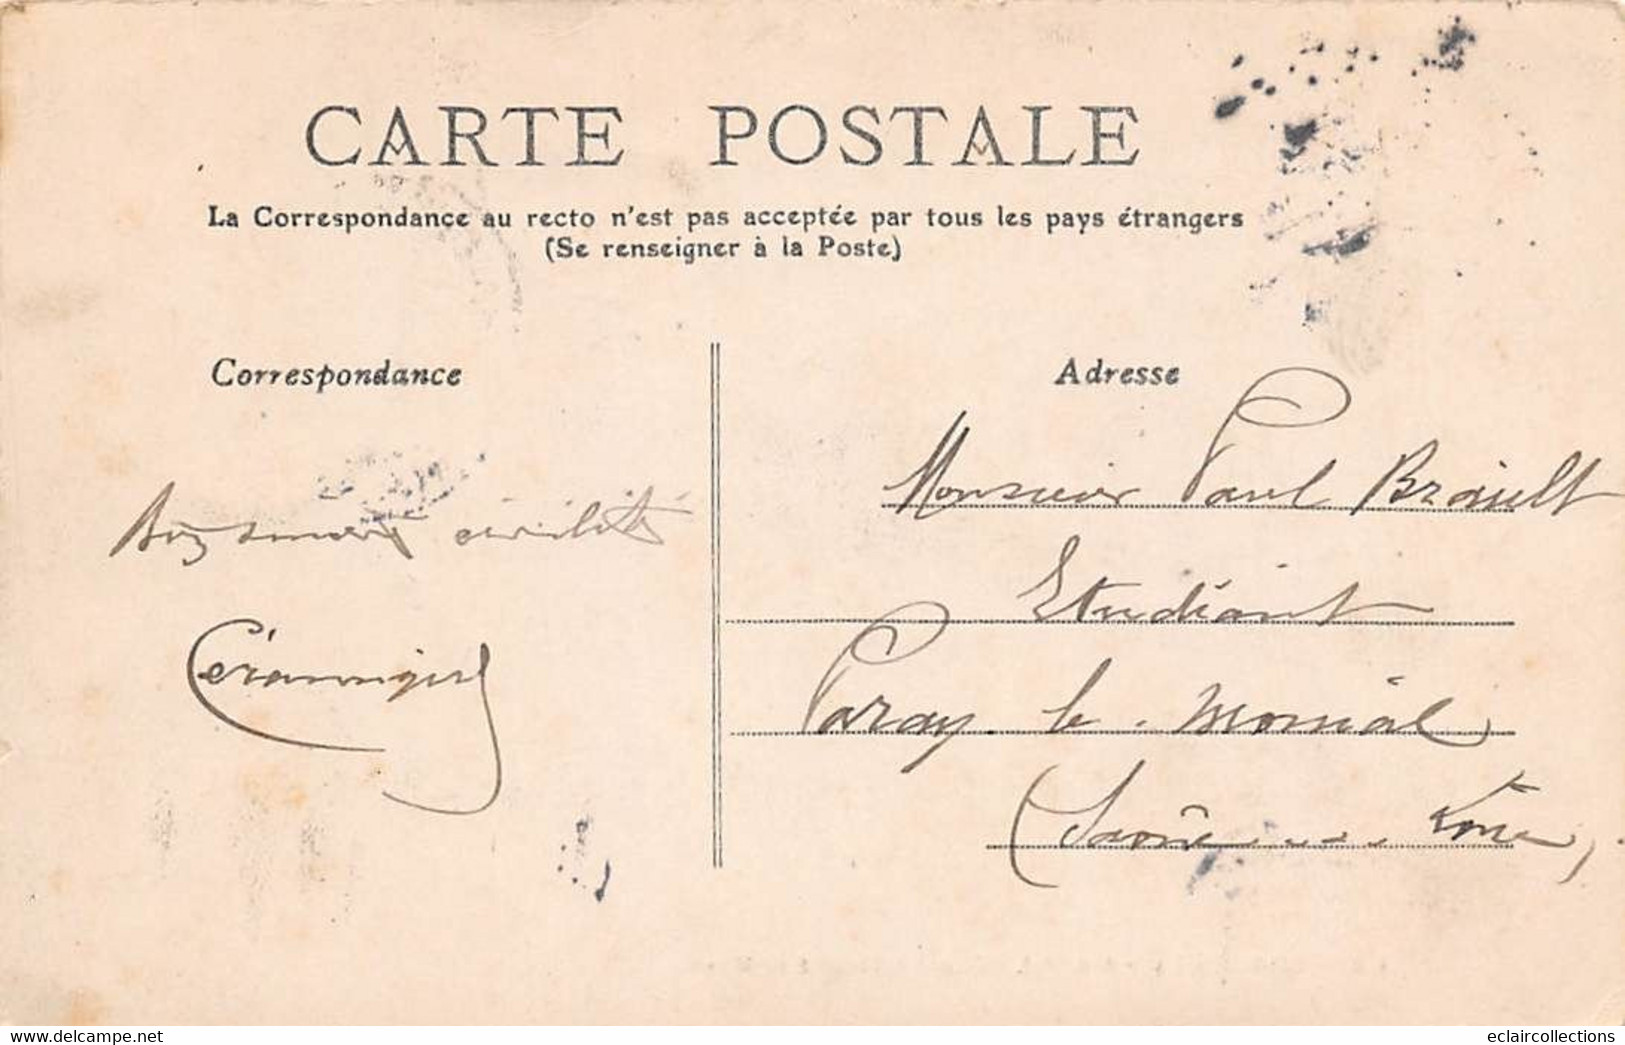 CARTE POSTALE
La Correspondance au recto n'est pas acceptée par tous les pays étrangers
(Se renseigner à la Poste)
Correspondance
Adresse
civilité
Monsieur Paul Brault
Etudiant
Paray le Monial
(Saône
www.delcampe.net
eclaircollections